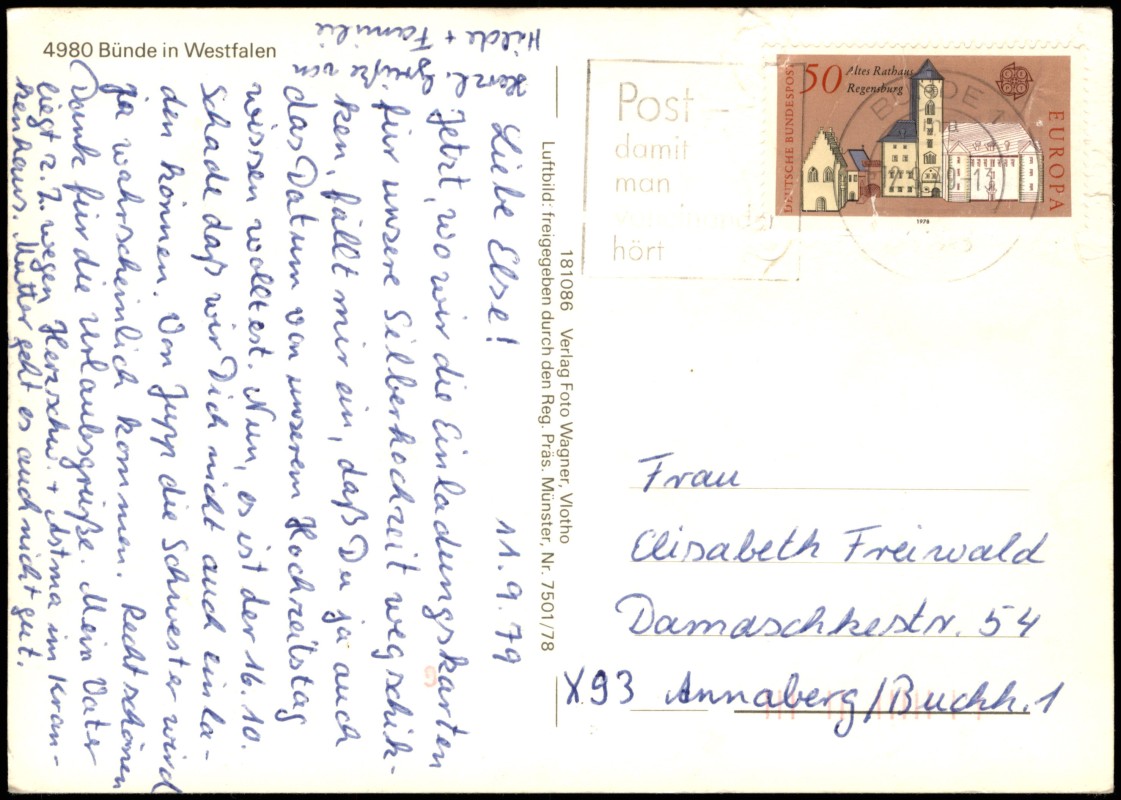 4980 Bünde in Westfalen
11.9.79
Liebe Else!
Jetzt, wo wir die Einladungskarten
für unsere Silberhochzeit wegschik-
ken, fällt mir ein, daß Du ja auch
das Datum von unserem Hochzeitstag
wissen wolltest. Nun, es ist der 16.10.
Schade daß wir Dich nicht auch einla-
den können. Von Jupp die Schwester wird
ja wahrscheinlich kommen. Recht schönen
Dank für die Urlaubsgrüße. Mein Vater
liegt z.Z. wegen Herzschw. + Astma im Kran-
kenhaus. Mutter geht es auch nicht gut.
Herzl. Grüße von
Hilde + Familie
181086 Verlag Foto Wagner, Vlotho
Luftbild: freigegeben durch den Reg. Präs. Münster, Nr. 7501/78
Post –
damit
man
voneinander
hört
50
Altes Rathaus
Regensburg
DEUTSCHE BUNDESPOST
EUROPA
1978
BÜNDE 1
Frau
Elisabeth Freiwald
Damaschkestr. 54
X93 Annaberg/Buchh. 1